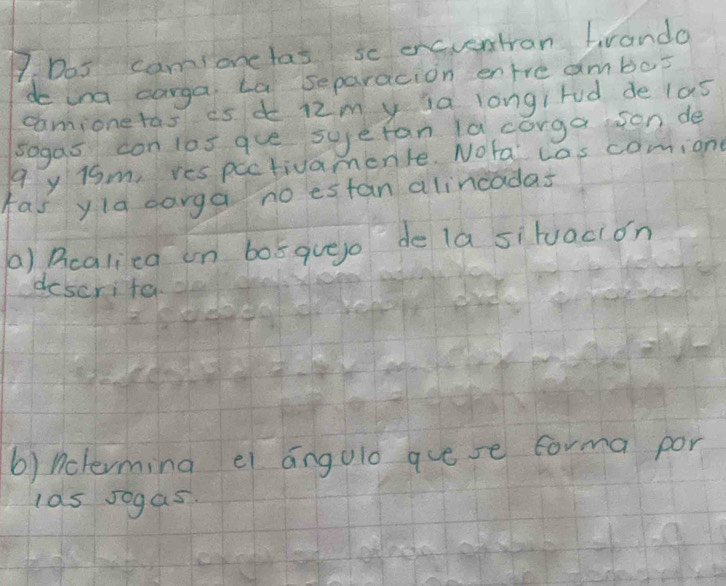 7. Dos camionetas se encuentran tirando
de una carga. La separación entre ambas
camionetas es de 12 m y la longitud de las
sogas con las que sujetan la carga son de
9 y 15m, respectivamente. Nota: Las camione
tas y la carga no estan alineadas
a) Realiza un bosquejo de la situación
descrita.
b) Determina el ángulo que se forma por
las sogas.